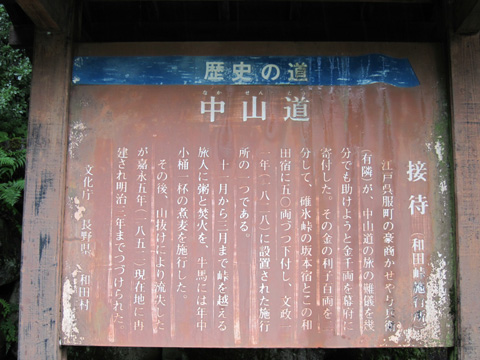 歴史の道
中山道
なか せん どう
接待（和田峠施行所）
江戸呉服町の豪商かせや与兵衛
（有隣）が、中山道の旅の難儀を幾
分でも助けようと金千両を幕府に
寄付した。その金の利子百両を二
分して、碓氷峠の坂本宿とこの和
田宿に五〇両づつ下付し、文政十
一年（一八二八）に設置された施行
所の一つである。
十一月から三月まで峠を越える
旅人に粥と焚火を、牛馬には年中
小桶一杯の煮麦を施行した。
その後、山抜けにより流失した
が嘉永五年（一八五二）現在地に再
建され明治三年までつづけられた。
文化庁 長野県 和田村